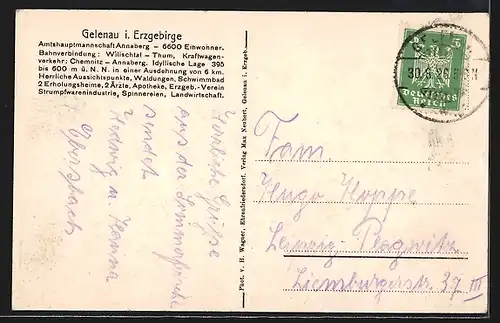 Gelenau i. Erzgebirge
Amtshauptmannschaft Annaberg — 6600 Einwohner.
Bahnverbindung: Wilischtal – Thum, Kraftwagen-
verkehr: Chemnitz – Annaberg. Idyllische Lage 395
bis 600 m ü. N. N. in einer Ausdehnung von 6 km.
Herrliche Aussichtspunkte, Waldungen, Schwimmbad
2 Erholungsheime, 2 Ärzte, Apotheke, Erzgeb.-Verein
Strumpfwarenindustrie, Spinnereien, Landwirtschaft.
Herzliche Grüße
aus der Sommerfrische
sendet
Hedwig u. Hanna
Phot. v. H. Wagner, Ehrenfriedersdorf. Verlag Max Neubert, Gelenau i. Erzgeb.
5
Deutsches
Reich
30.6.26.
Fam.
Hugo Hoppe
Leipzig-Plagwitz
37 III